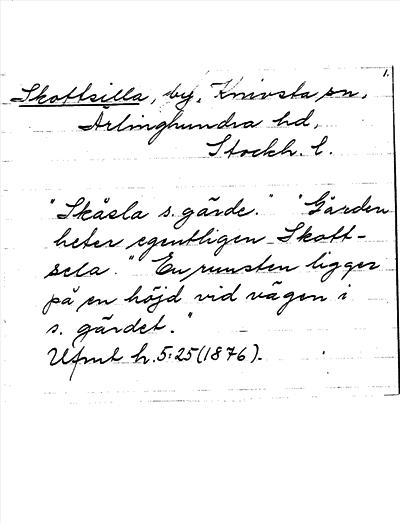 1.
Skottsilla, by, Knivsta sn,
Ärlinghundra hd,
Stockh. l.
"Skåsla s. gärde." "Gården
heter egentligen Skott-
sela." "En runsten ligger
på en höjd vid vägen i
s. gärdet."
Ufmt h. 5:25 (1876).